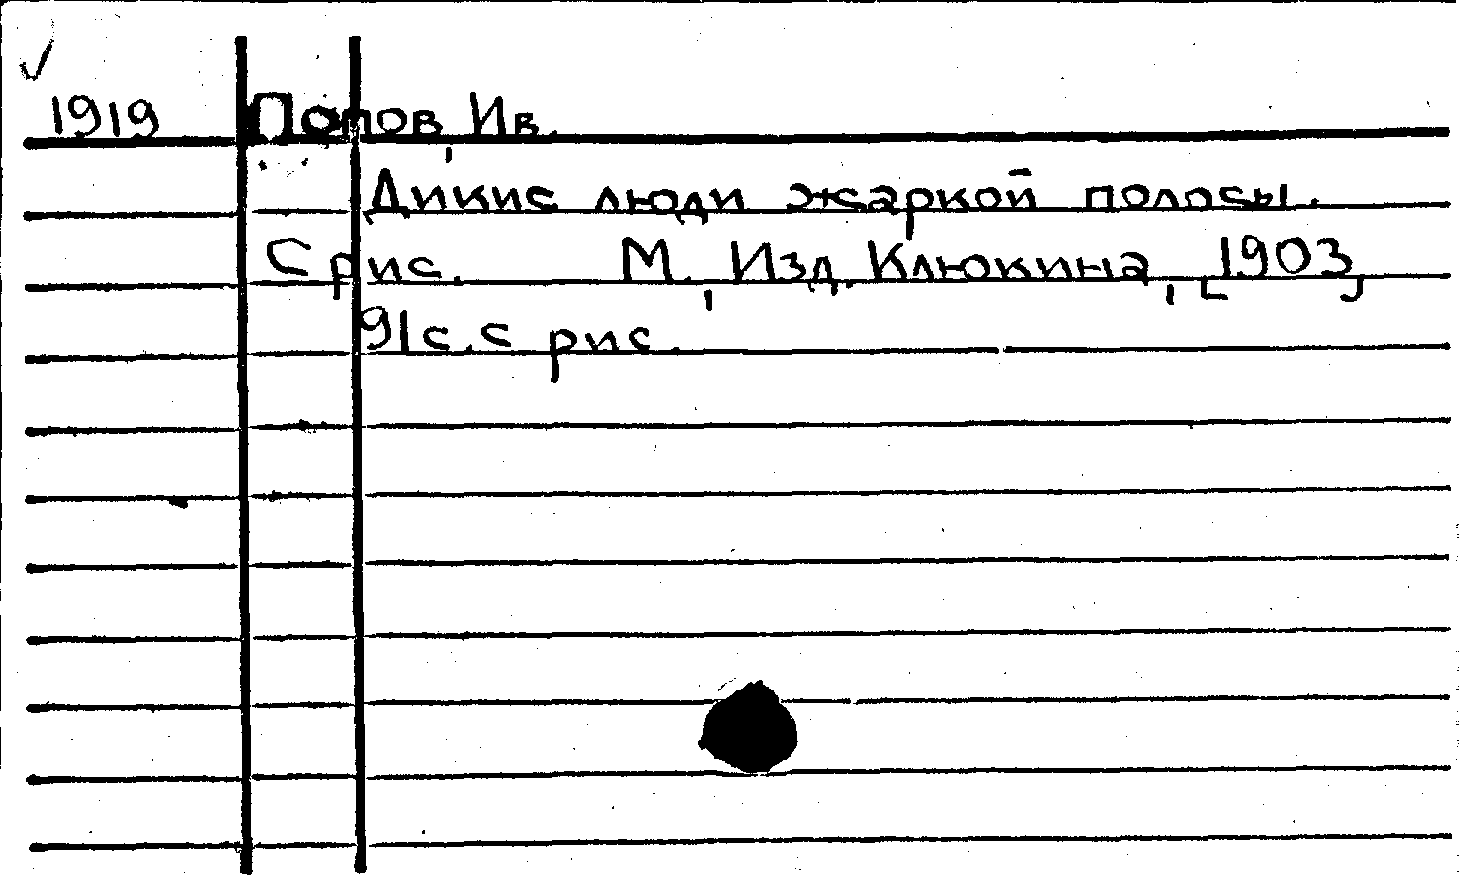 1919 Попов, Ив.
Дикие люди жаркой полосы.
С рис. М., Изд. Клюкина, [1903]
91с. с рис.